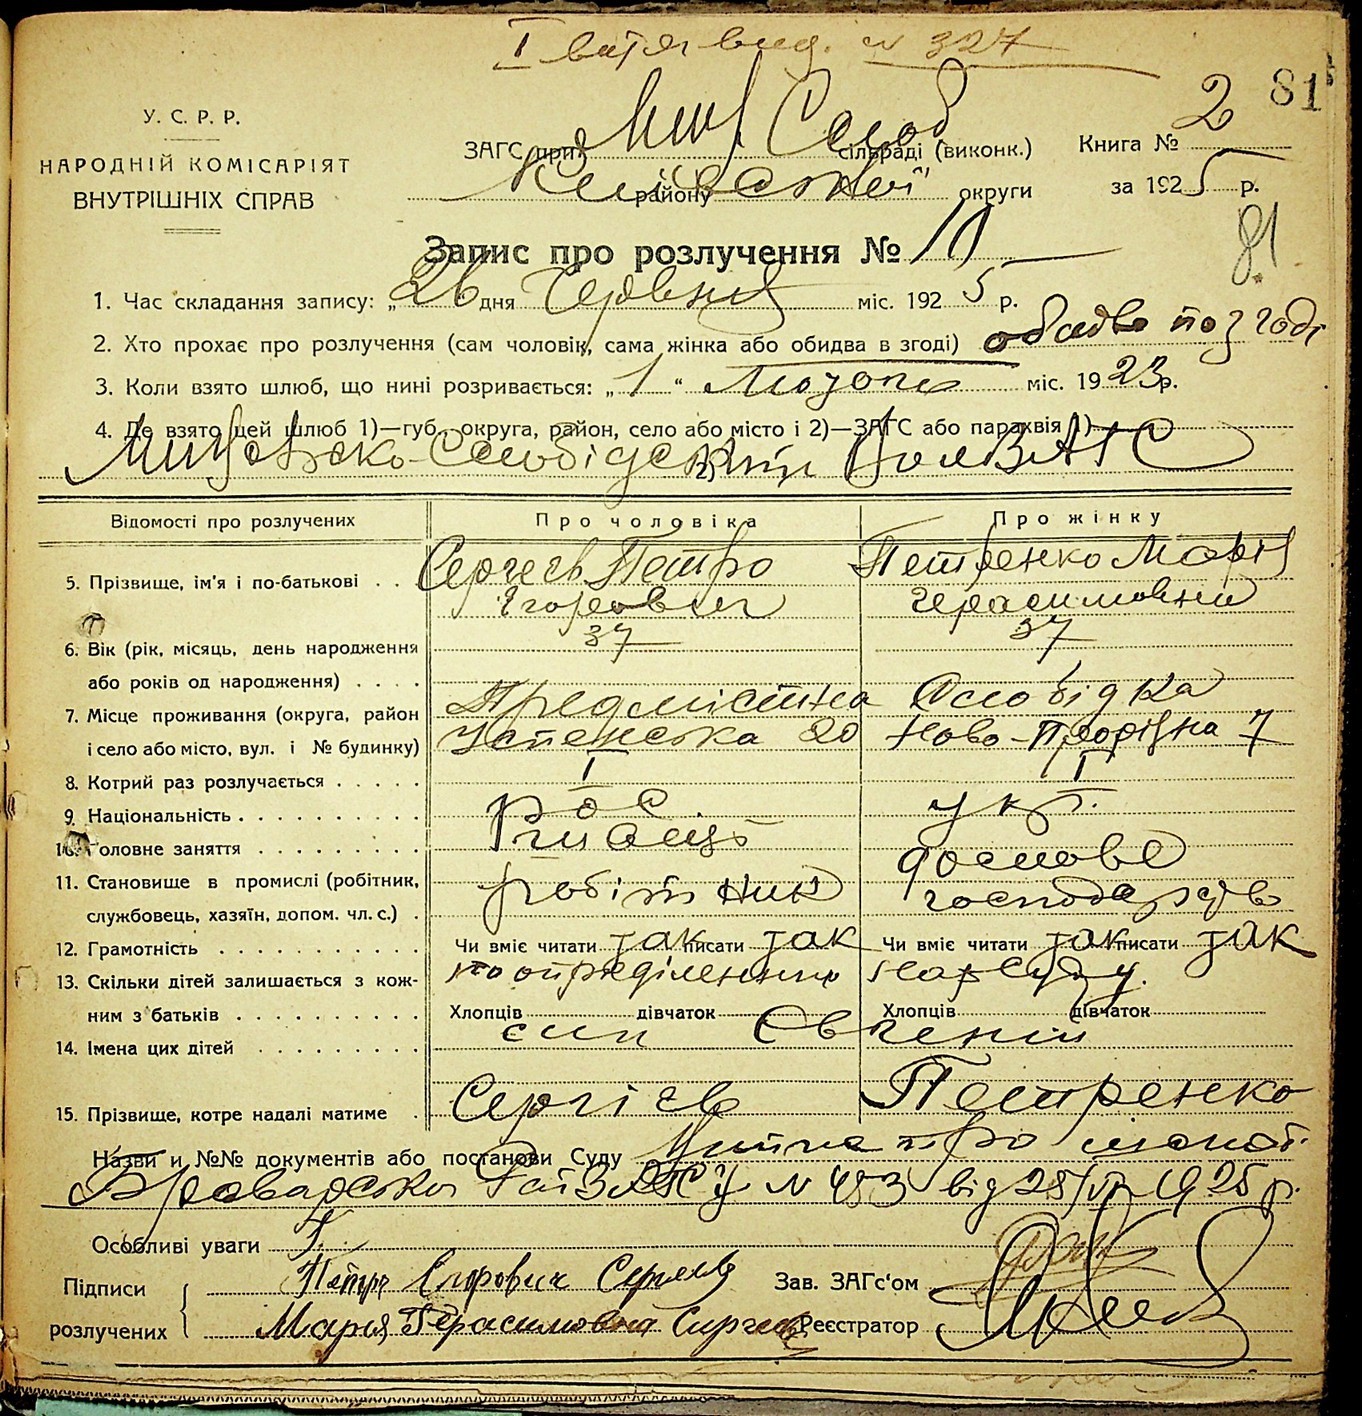 І витяг вид. № 327
81
У. С. Р. Р.
НАРОДНІЙ КОМІСАРІЯТ
ВНУТРІШНІХ СПРАВ
ЗАГС при Мик. Слоб. сільраді (виконк.)
Київської району округи
Книга № 2
за 1925 р.
81
Запис про розлучення № 10
1. Час складання запису: „26 дня Червня міс. 1925 р.
2. Хто прохає про розлучення (сам чоловік, сама жінка або обидва в згоді) обидва по згоді
3. Коли взято шлюб, що нині розривається: „1" Лютого міс. 1923 р.
4. Де взято цей шлюб 1)—губ., округа, район, село або місто і 2)—ЗАГС або парахвія 1)
2)
Відомості про розлучених Про чоловіка Про жінку
5. Прізвище, ім'я і по-батькові . . Сергеєв Петро Петренко Марія
Герасимовна
6. Вік (рік, місяць, день народження 37 37
або років од народження) . . . .
7. Місце проживання (округа, район Предмістна Слобідка
і село або місто, вул. і № будинку) Успенська 20 Ново- 7
8. Котрий раз розлучається . . . . . І І
9. Національність . . . . . . . . . . Рос укр.
10. Головне заняття . . . . . . . . .
11. Становище в промислі (робітник, робітник домове
службовець, хазяїн, допом. чл. с.) . господарств
12. Грамотність . . . . . . . . . . . Чи вміє читати так писати так Чи вміє читати так писати так
13. Скільки дітей залишається з кож- по опреділенню Нарсуду.
ним з батьків . . . . . . . . . . Хлопців дівчаток Хлопців дівчаток
14. Імена цих дітей . . . . . . . . . син Євгеній
15. Прізвище, котре надалі матиме . Сергієв Петренко
Назви и №№ документів або постанови Суду
Броварського РайЗАГСу № 483 від 25/VI 1925 р.
Особливі уваги
Підписи Петр Егорович Сергеев Зав. ЗАГс'ом
розлучених Мария Герасимовна Сергеев Реєстратор